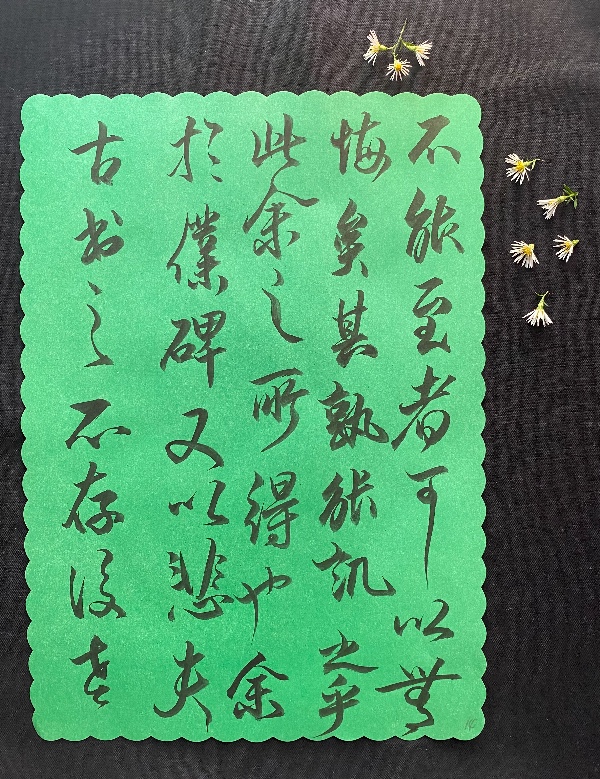 不能至者可以無
悔矣其孰能讥之乎
此余之所得也余
於僕碑又以悲夫
古书之不存後世